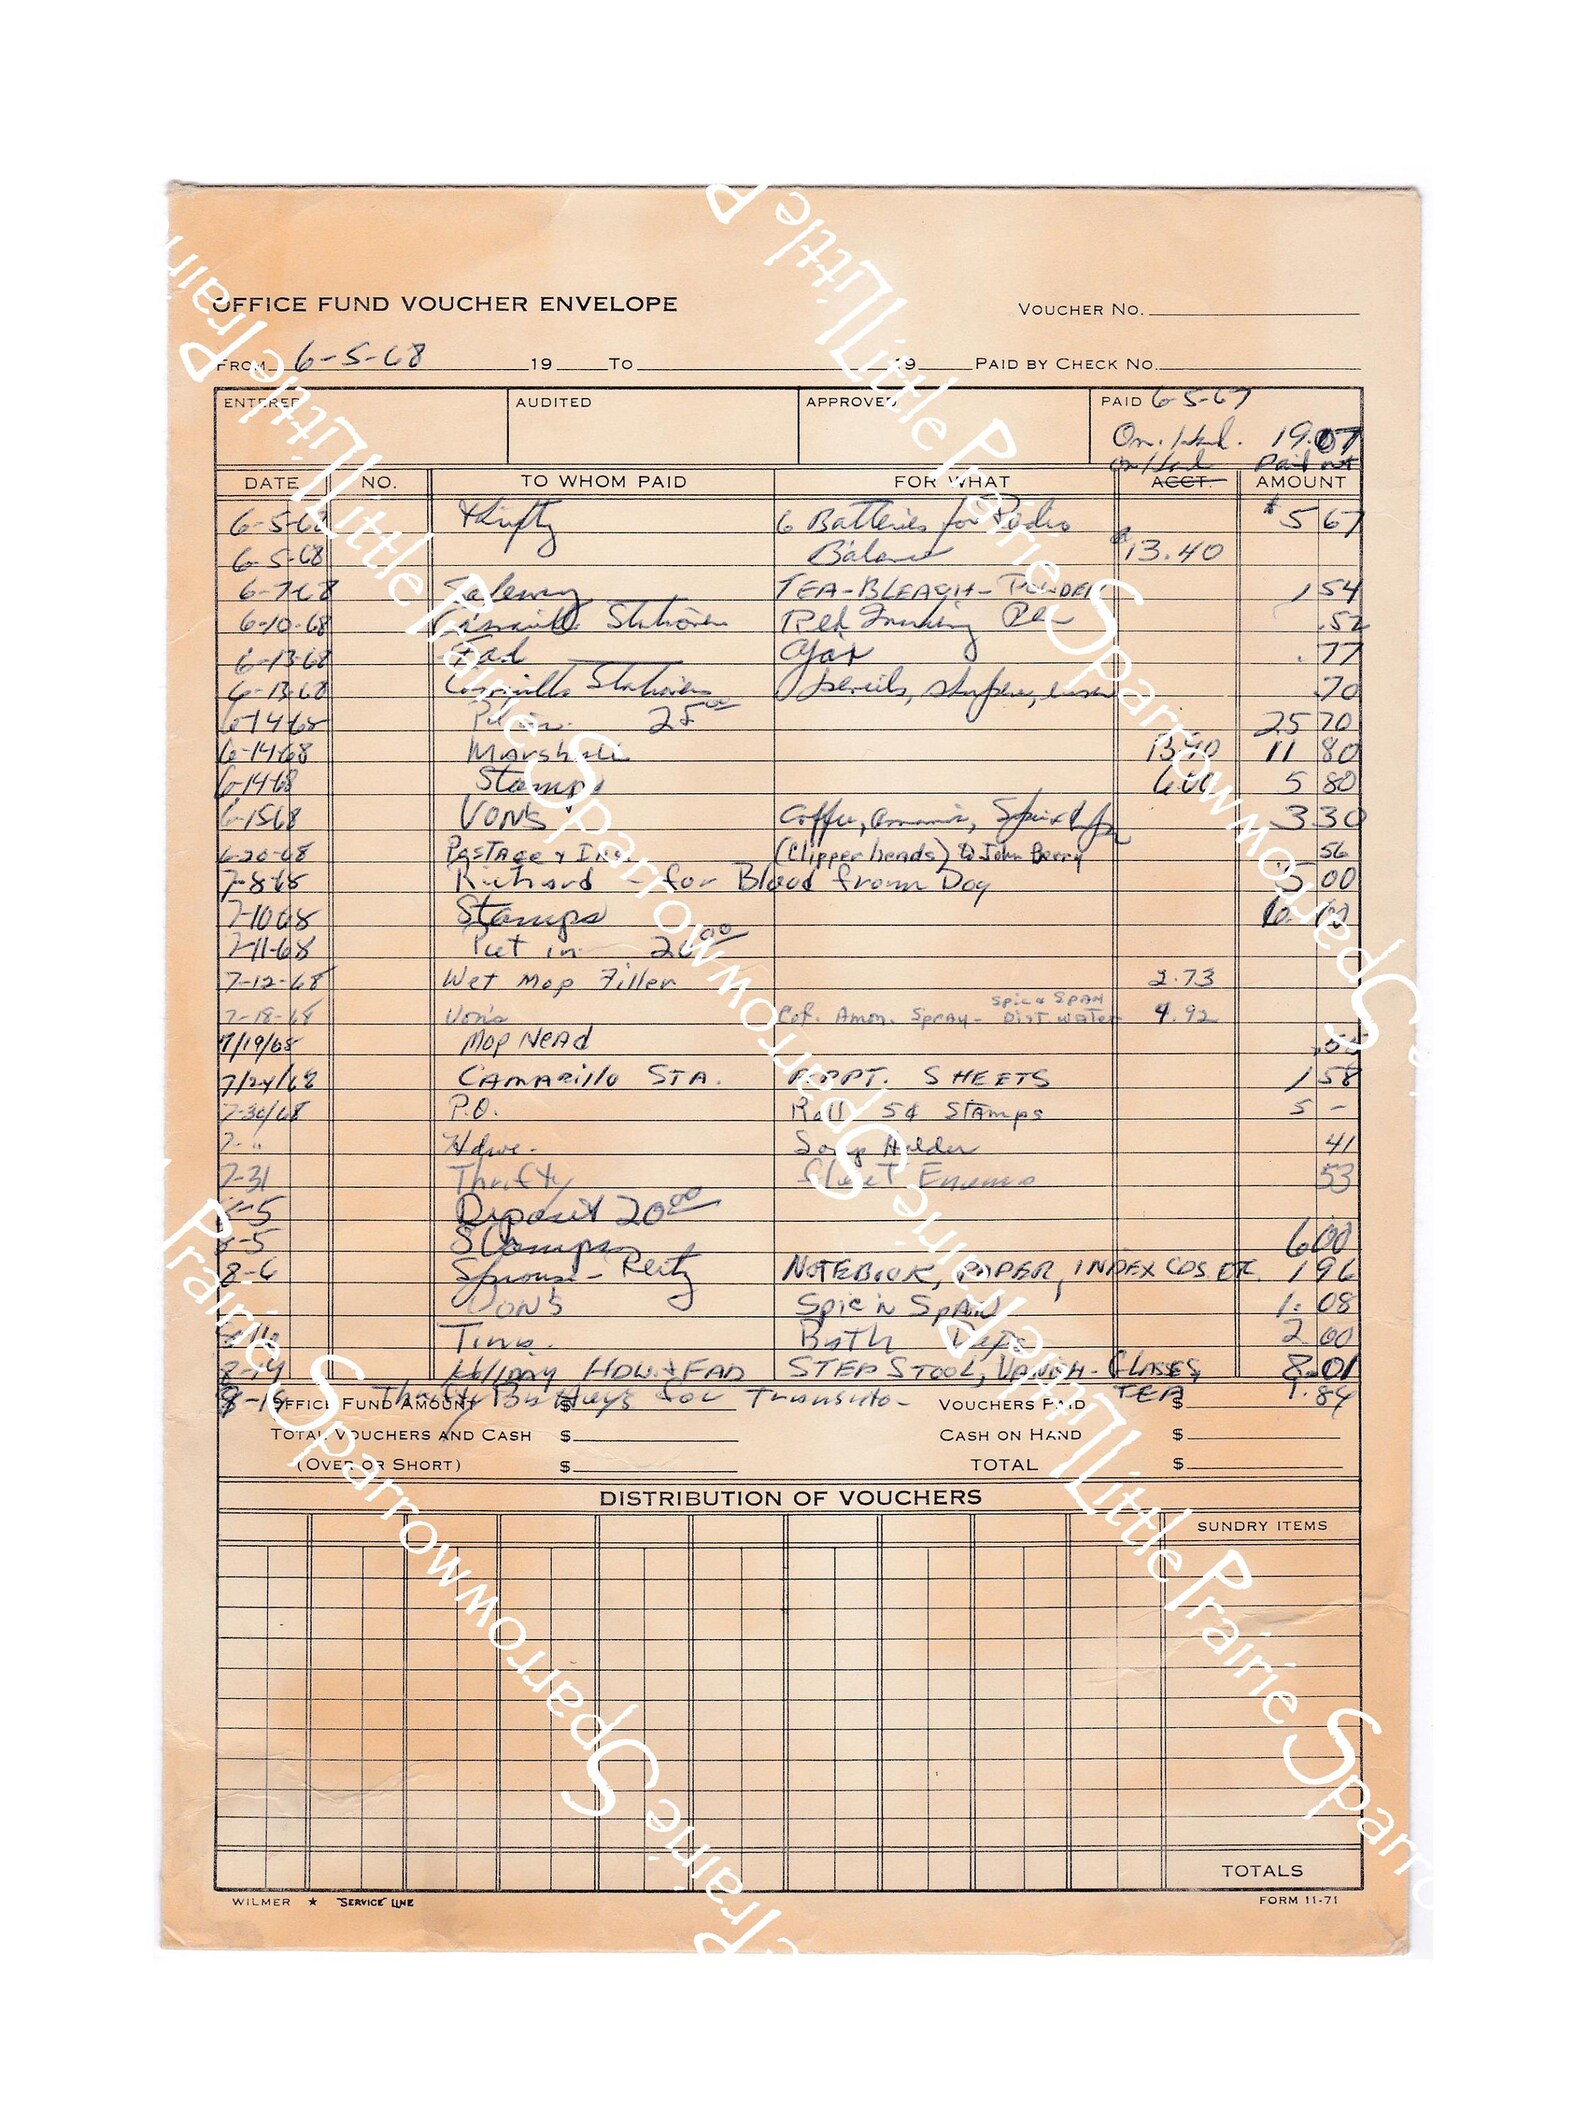 OFFICE FUND VOUCHER ENVELOPE
VOUCHER NO.
FROM 6-5-68 19 TO 19 PAID BY CHECK NO.
ENTERED AUDITED APPROVED PAID 6-5-67
On Hd. 19.07
on Hd Paid out
DATE NO. TO WHOM PAID FOR WHAT ACCT. AMOUNT
6-5-68 Thrifty 6 Batteries for Radio $5 67
6-5-68 Balance 13.40
6-7-68 Safeway TEA-BLEACH-POWDER 1 54
6-10-68 Camarillo Stationers Red Marking Pen .52
6-13-68 Fad Ajax .77
6-13-68 Camarillo Stationers pencils, .70
6-14-68 Put in 25 00 25 70
6-14-68 Marshall 13.40 11 80
6-14-68 Stamps 6.00 5 80
6-15-68 VON'S Coffee, 3 30
6-20-68 POSTAGE & INS. (Clipper heads) to John Berry 56
7-8-68 Richard - for Blood from Dog 5 00
7-10-68 Stamps 6.00
7-11-68 Put in 20 00
7-12-68 Wet Mop Filler 2.73
Spic & SPAN
7-18-68 Von's Cof. Amon. Spray - Dist. water 4.92
7/19/68 Mop Head
7/24/68 CAMARILLO STA. SHEETS 1 58
7-30/68 P.O. Roll 5¢ Stamps 5 -
7- " Hdwe. Soap Holder 41
7-31 Thrifty Fleet Enema 53
8-5 Deposit 20 00
8-5 Stamps 6 00
8-6 Sprouse-Reitz NOTEBOOK, PAPER, INDEX CDS. ETC. 1 96
VON'S Spic n Span 1. 08
Bath 2 00
8-14 Holiday HDW. & FAD STEP STOOL, VANISH- GLASSES 8.01
8-15 Thrifty for TEA 1.84
OFFICE FUND AMOUNT $ VOUCHERS PAID $
TOTAL VOUCHERS AND CASH $ CASH ON HAND $
(OVER OR SHORT) $ TOTAL $
DISTRIBUTION OF VOUCHERS
SUNDRY ITEMS
TOTALS
WILMER ★ "SERVICE" LINE FORM 11-71
Little Prairie Sparrow
Little Prairie Sparrow
Little Prairie Sparrow
Little Prairie Sparrow